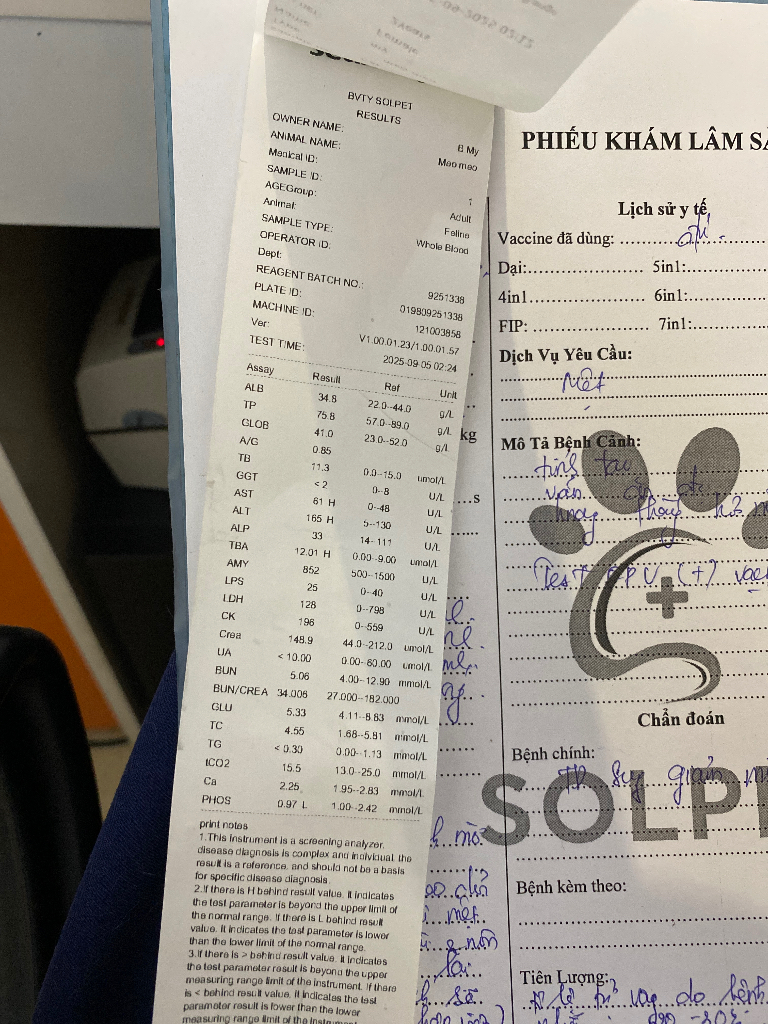 BVTY SOLPET
RESULTS
OWNER NAME: B My
ANIMAL NAME: Meo meo
Medical ID:
SAMPLE ID: 1
AGEGroup: Adult
Animal: Feline
SAMPLE TYPE: Whole Blood
OPERATOR ID:
Dept:
REAGENT BATCH NO.: 9251338
PLATE ID: 019809251338
MACHINE ID: 121003858
Ver: V1.00.01.23/1.00.01.57
TEST TIME: 2025-09-05 02:24
Assay Result Ref Unit
ALB 34.8 22.0--44.0 g/L
TP 75.8 57.0--89.0 g/L
GLOB 41.0 23.0--52.0 g/L
A/G 0.85
TB 11.3 0.0--15.0 umol/L
GGT < 2 0--8 U/L
AST 61 H 0--48 U/L
ALT 165 H 5--130 U/L
ALP 33 14--111 U/L
TBA 12.01 H 0.00--9.00 umol/L
AMY 852 500--1500 U/L
LPS 25 0--40 U/L
LDH 128 0--798 U/L
CK 196 0--559 U/L
Crea 148.9 44.0--212.0 umol/L
UA < 10.00 0.00--60.00 umol/L
BUN 5.06 4.00--12.90 mmol/L
BUN/CREA 34.006 27.000--182.000
GLU 5.33 4.11--8.83 mmol/L
TC 4.55 1.68--5.81 mmol/L
TG < 0.30 0.00--1.13 mmol/L
tCO2 15.5 13.0--25.0 mmol/L
Ca 2.25 1.95--2.83 mmol/L
PHOS 0.97 L 1.00--2.42 mmol/L
print notes
1.This instrument is a screening analyzer,
disease diagnosis is complex and individual, the
result is a reference, and should not be a basis
for specific disease diagnosis.
2.If there is H behind result value, it indicates
the test parameter is beyond the upper limit of
the normal range. If there is L behind result
value. It indicates the test parameter is lower
than the lower limit of the normal range.
3.If there is > behind result value. It indicates
the test parameter result is beyond the upper
measuring range limit of the instrument. If there
is < behind result value, it indicates the test
parameter result is lower than the lower
measuring range limit of the instrument
PHIẾU KHÁM LÂM
Lịch sử y tế
Vaccine đã dùng:
Dại: 5in1:
4in1 6in1:
FIP: 7in1:
Dịch Vụ Yêu Cầu:
Mệt
kg
Mô Tả Bệnh Cảnh:
s
Test FPV (+)
Chẩn đoán
Bệnh chính:
TD Suy giảm
SOLP
Bệnh kèm theo:
Tiên Lượng: